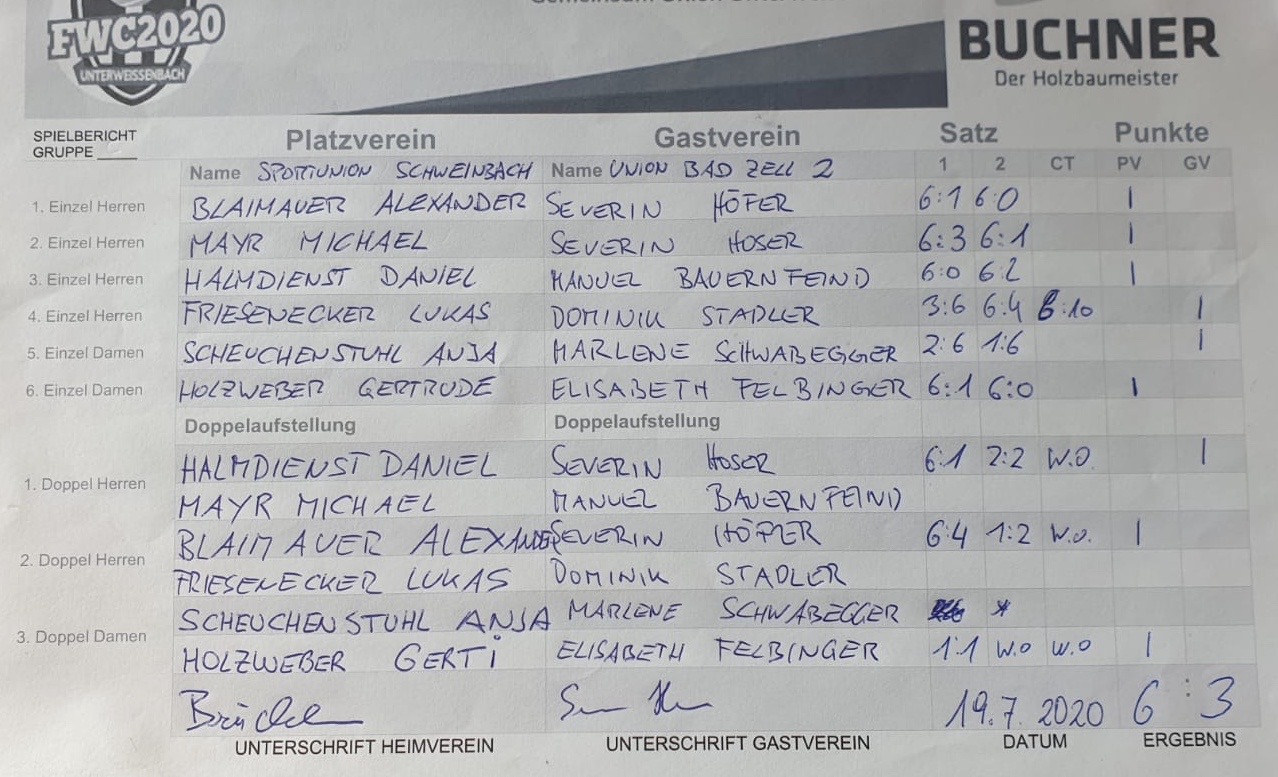 FWC2020
UNTERWEISSENBACH
BUCHNER
Der Holzbaumeister
SPIELBERICHT
GRUPPE ____
Platzverein Gastverein Satz Punkte
Name SPORTUNION SCHWEINBACH Name UNION BAD ZELL 2 1 2 CT PV GV
1. Einzel Herren BLAIMAUER ALEXANDER SEVERIN HÖFER 6:1 6:0 1
2. Einzel Herren MAYR MICHAEL SEVERIN HOSER 6:3 6:1 1
3. Einzel Herren HALMDIENST DANIEL MANUEL BAUERNFEIND 6:0 6:2 1
4. Einzel Herren FRIESENECKER LUKAS DOMINIK STADLER 3:6 6:4 8:10 1
5. Einzel Damen SCHEUCHENSTUHL ANJA MARLENE SCHWABEGGER 2:6 1:6 1
6. Einzel Damen HOLZWEBER GERTRUDE ELISABETH FELBINGER 6:1 6:0 1
Doppelaufstellung Doppelaufstellung
1. Doppel Herren HALMDIENST DANIEL SEVERIN HOSER 6:1 2:2 W.O. 1
MAYR MICHAEL MANUEL BAUERNFEIND
2. Doppel Herren BLAIMAUER ALEXANDER SEVERIN HÖFER 6:4 1:2 W.O. 1
FRIESENECKER LUKAS DOMINIK STADLER
3. Doppel Damen SCHEUCHENSTUHL ANJA MARLENE SCHWABEGGER
HOLZWEBER GERTI ELISABETH FELBINGER 1:1 W.O W.O 1
19.7.2020 6:3
UNTERSCHRIFT HEIMVEREIN UNTERSCHRIFT GASTVEREIN DATUM ERGEBNIS